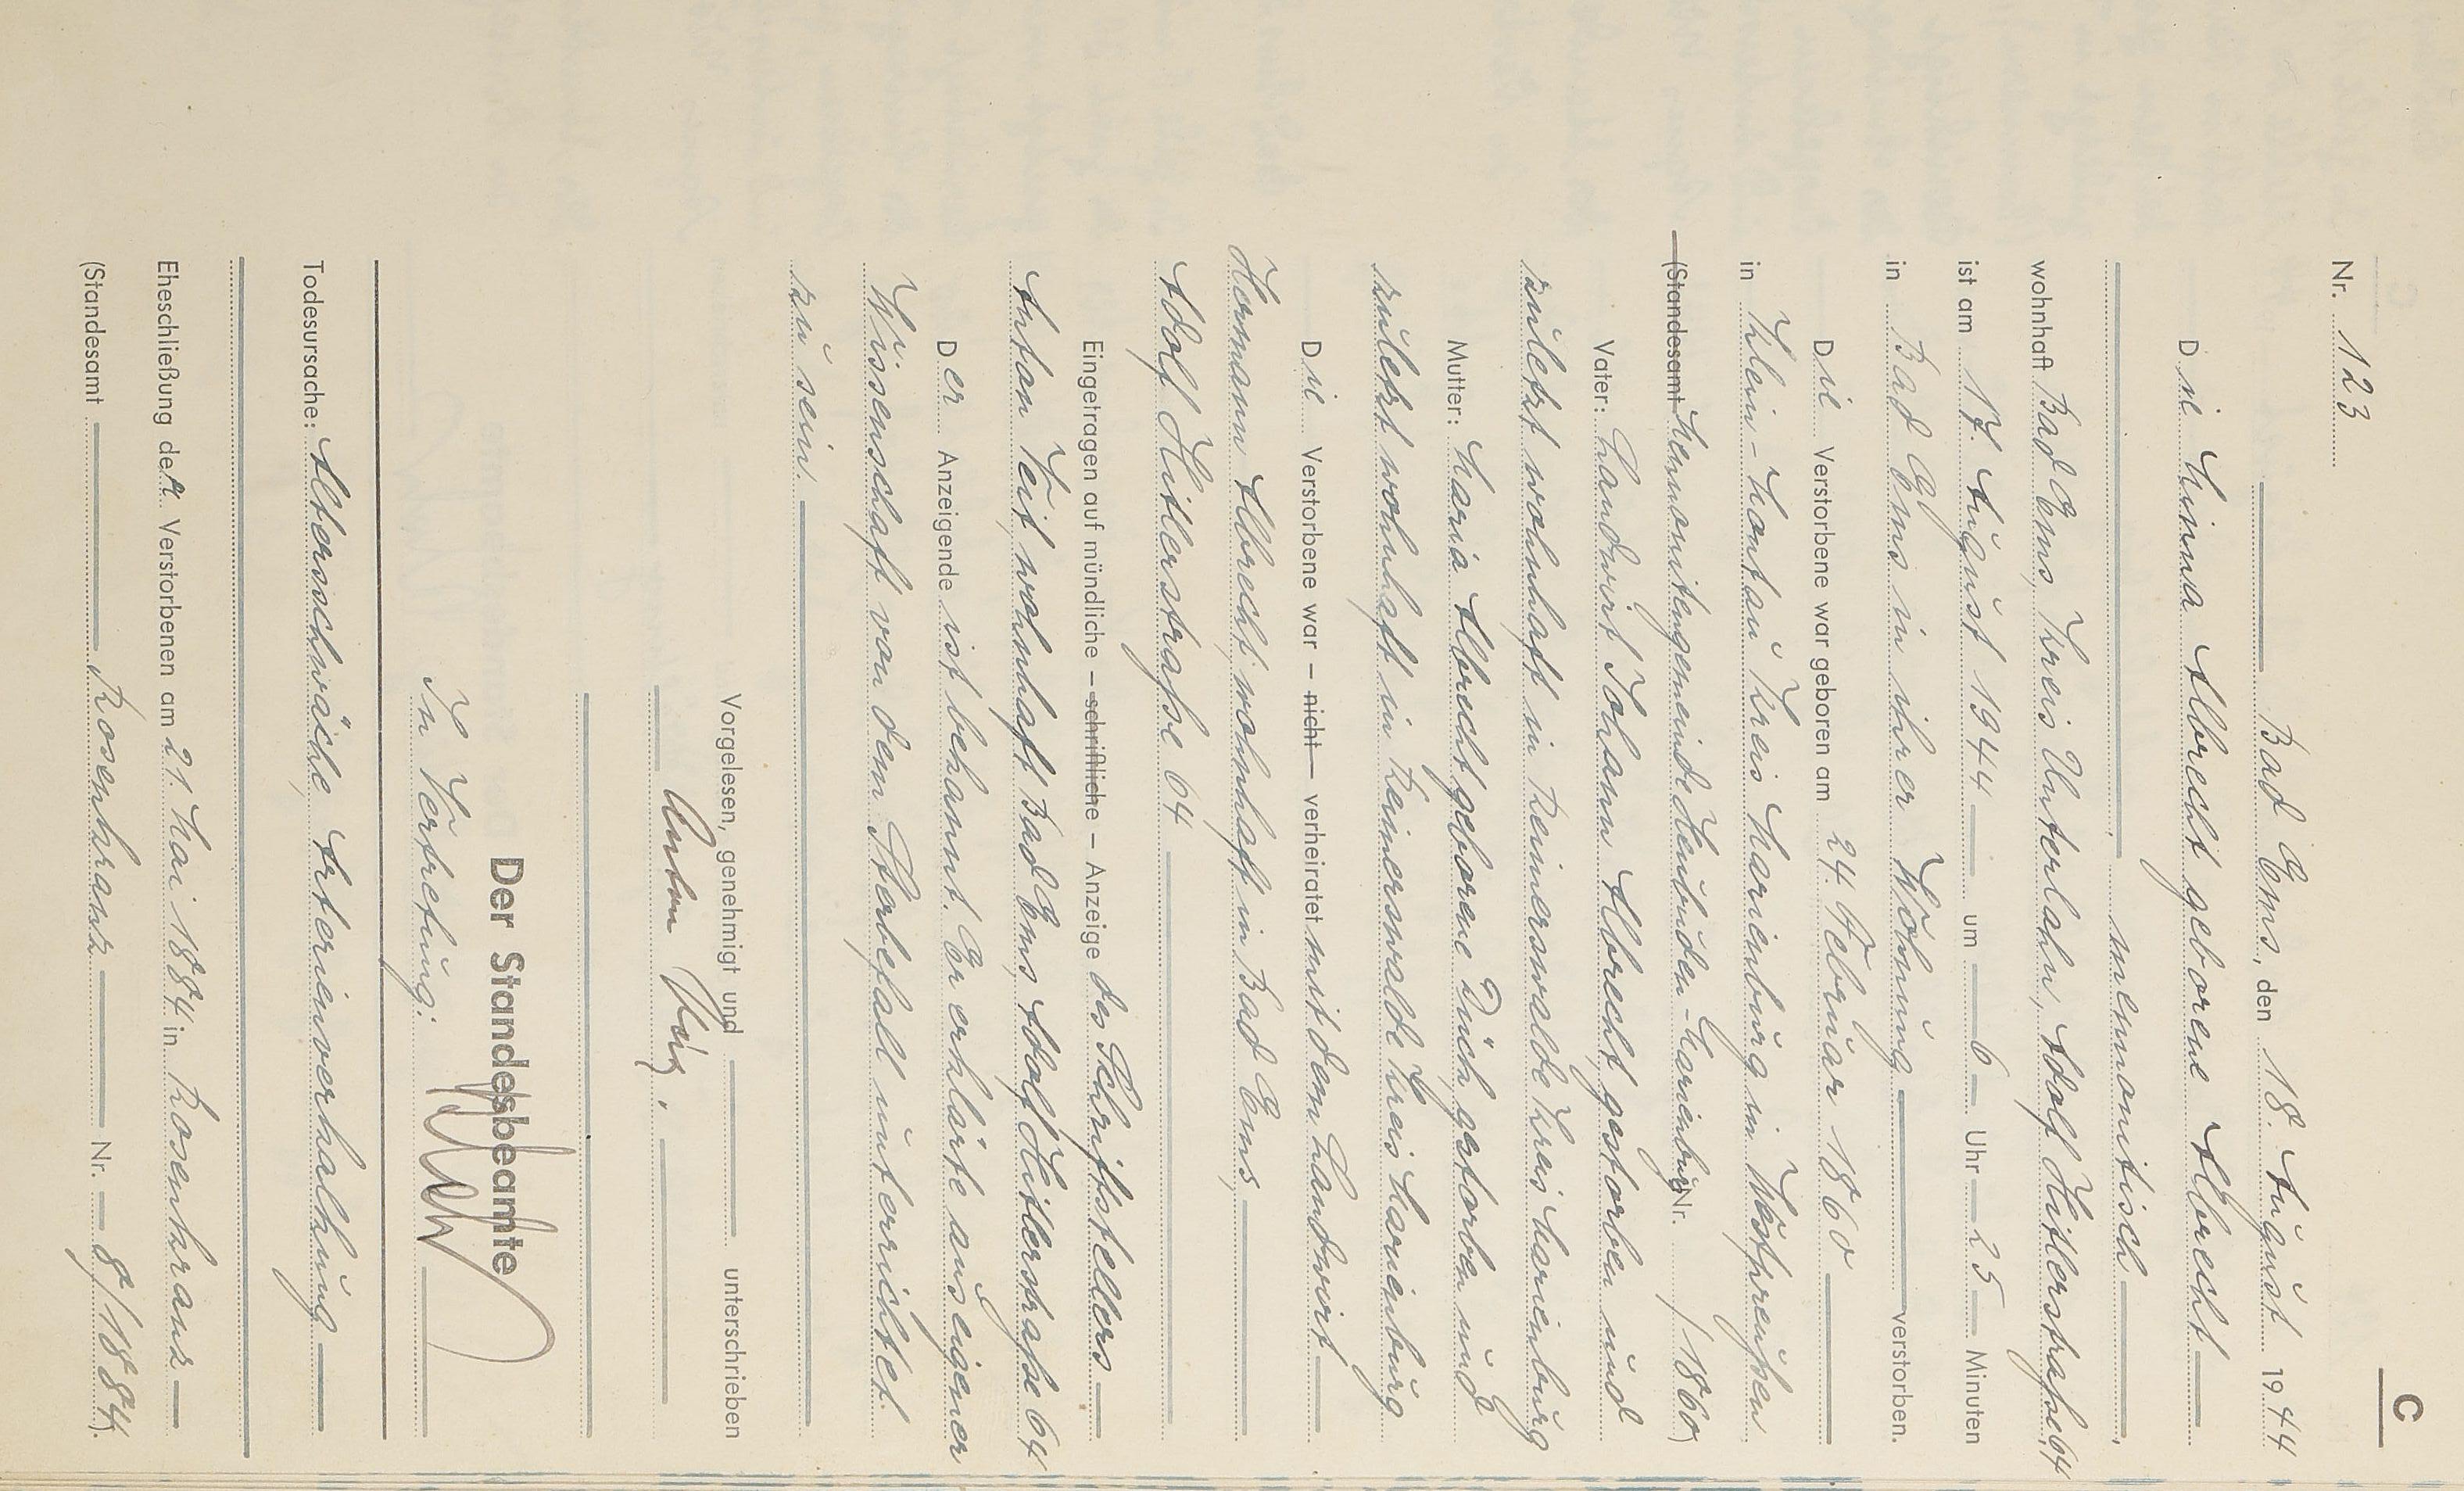 C
Nr. 123
Bad Ems, den 18. August 1944
Die Minna Albrecht geborene Albrecht
mennonitisch
wohnhaft Bad Ems, Kreis Unterlahn, Adolf Hitlerstraße 64
ist am 17. August 1944 um 6 Uhr 25 Minuten
in Bad Ems in ihrer Wohnung verstorben.
Die Verstorbene war geboren am 24. Februar 1860
in Klein-Montau Kreis Marienburg in Westpreußen
(Standesamt Mennonitengemeinde Heubuden-Marienburg Nr. /1860)
Vater: Landwirt Johann Albrecht, gestorben und
zuletzt wohnhaft in Reimerswalde Kreis Marienburg
Mutter: Maria Albrecht geborene Dück, gestorben und
zuletzt wohnhaft in Reimerswalde Kreis Marienburg
Die Verstorbene war – nicht – verheiratet mit dem Landwirt
Hermann Albrecht, wohnhaft in Bad Ems,
Adolf Hitlerstraße 64
Eingetragen auf mündliche – schriftliche – Anzeige des Schriftstellers
Anton Veit, wohnhaft Bad Ems, Adolf Hitlerstraße 64
Der Anzeigende ist bekannt. Er erklärte aus eigener
Wissenschaft von dem Sterbefall unterrichtet
zu sein.
Vorgelesen, genehmigt und unterschrieben
Anton Veit.
Der Standesbeamte
In Vertretung:
Todesursache: Altersschwäche, Arterienverkalkung
Eheschließung der Verstorbenen am 21. Mai 1884 in Rosenkranz
(Standesamt Rosenkranz Nr. 8/1884).